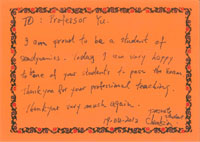 TO: Professor Yu.
I am proud to be a student of
aerodynamics. Today I am very happy
to be one of your students to pass the exam
thank you for your professional teaching.
thank you very much again.
student
19-06-2012